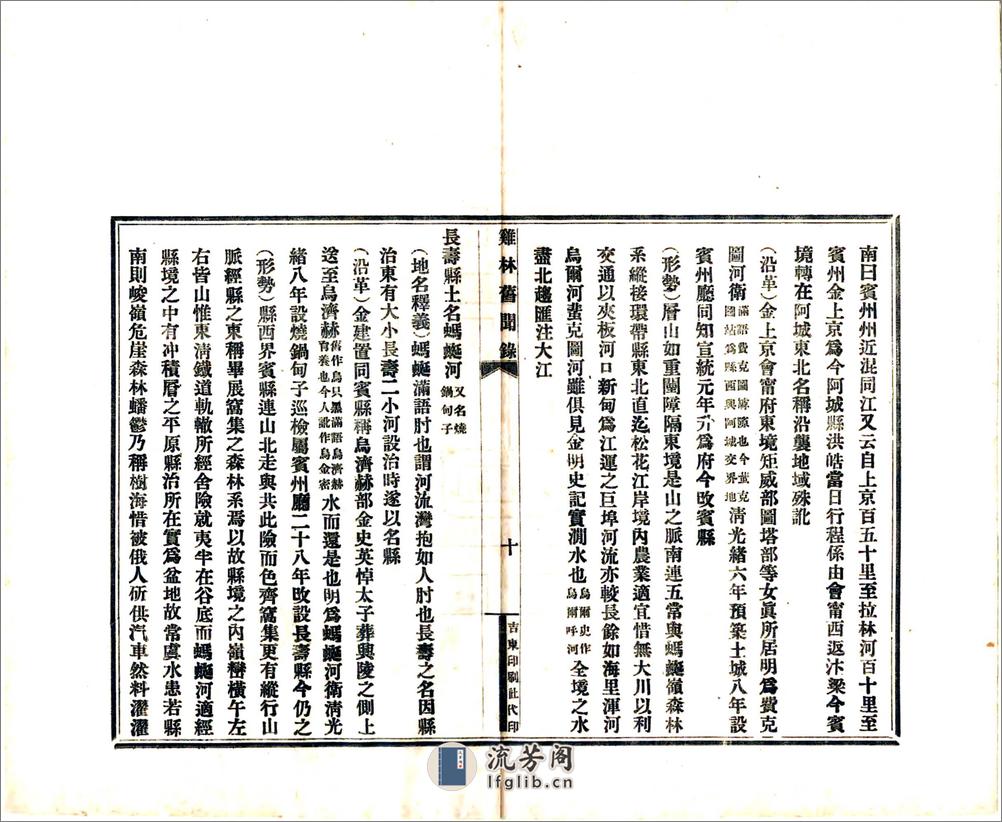 南曰賓州州近混同江又云自上京百五十里至拉林河百十里至
賓州金上京爲今阿城縣洪皓當日行程係由會甯西返汴梁今賓
境轉在阿城東北名稱沿襲地域殊訛
(沿革)金上京會甯府東境矩威部圖塔部等女眞所居明爲費克
圖河衛滿語費克圖罅隙也今蜚克圖站爲縣西與阿城交界地淸光緒六年預築土城八年設
賓州廳同知宣統元年升爲府今改賓縣
(形勢)層山如重闉障隔東境是山之脈南連五常與螞蜒嶺森林
系縱接環帶縣東北直迄松花江岸境內農業適宜惜無大川以利
交通以夾板河口新甸爲江運之巨埠河流亦較長餘如海里渾河
烏爾河蜚克圖河雖俱見金明史記實澗水也烏爾史作烏爾呼河全境之水
盡北趨匯注大江
雞林舊聞錄
十
吉東印刷社代印
長壽縣土名螞蜒河又名燒鍋甸子
(地名釋義)螞蜒滿語肘也謂河流灣抱如人肘也長壽之名因縣
治東有大小長壽二小河設治時遂以名縣
(沿革)金建置同賓縣稱烏濟赫部金史英悼太子葬興陵之側上
送至烏濟赫舊作烏只黑滿語烏濟赫育養也今人訛作烏金密水而還是也明爲螞蜒河衛清光
緒八年設燒鍋甸子巡檢屬賓州廳二十八年改設長壽縣今仍之
(形勢)縣西界賓縣連山北走與共此險而色齊窩集更有縱行山
脈經縣之東稱畢展窩集之森林系焉以故縣境之內嶺巒橫午左
右皆山惟東淸鐵道軌轍所經舍險就夷半在谷底而螞蜒河適經
縣境之中有冲積層之平原縣治所在實爲盆地故常虞水患若縣
南則峻嶺危崖森林蟠鬱乃稱樹海惜被俄人斫供汽車然料濯濯
流芳阁
lfglib.cn